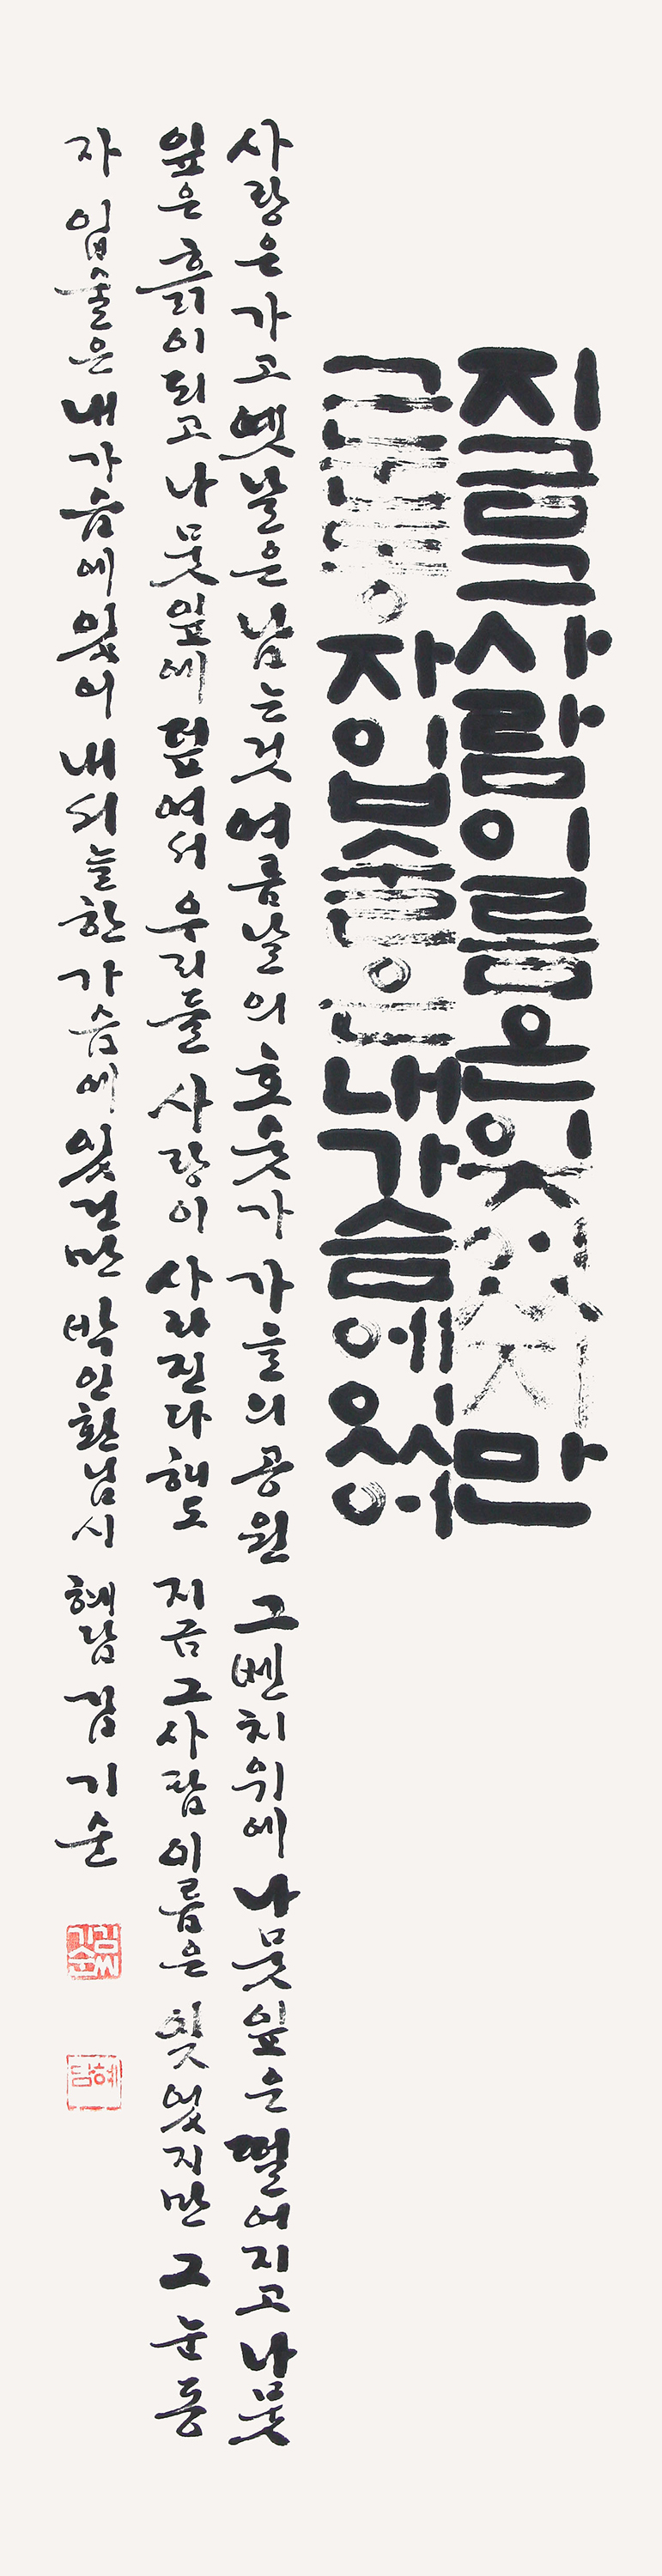 지금그사람이름은잊었지만
그눈동자입술은내가슴에있어
사랑은 가고 옛날은 남는것 여름날의 호숫가 가을의 공원 그벤치위에 나뭇잎은 떨어지고 나뭇
잎은 흙이되고 나뭇잎에 덮여서 우리들 사랑이 사라진다해도 지금 그사람 이름은 잊었지만 그 눈동
자 입술은 내가슴에 있어 내서늘한 가슴에 있건만 박인환님시 혜담 김기순
혜담